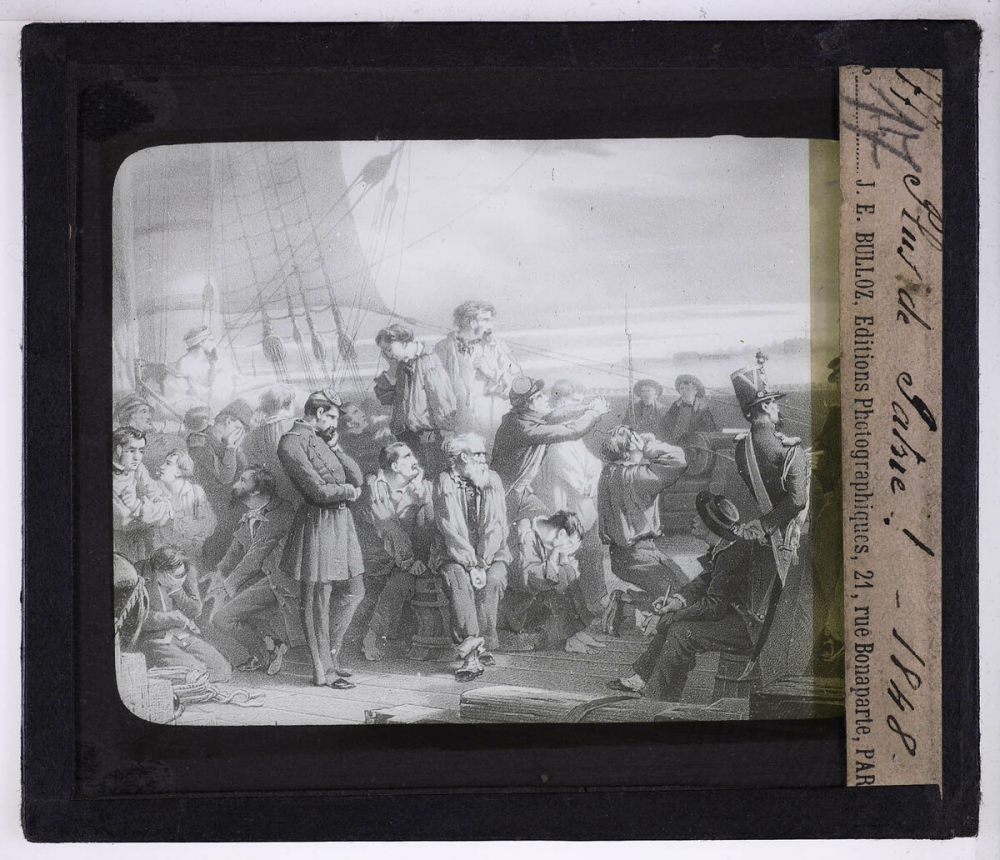 J. E. BULLOZ, Editions Photographiques, 21, rue Bonaparte, PAR
Plus de Patrie ! – 1848.